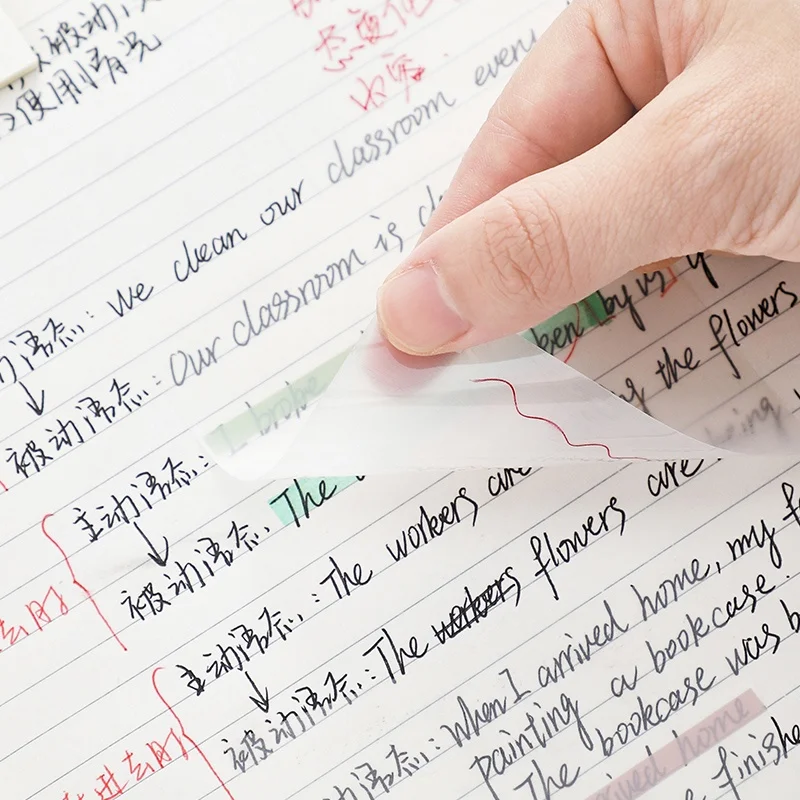 被动
使用情况
态变化
动语态: We clean our classroom every
被动语态: Our classroom is
主动语态: I broke
被动语态: The ken by us
主动语态: The workers are ing the flowers
被动语态: The workers flowers are being
去时
动语态: When I arrived home, my f
painting a bookcase.
The bookcase was b
进去时
arrived home
finishe